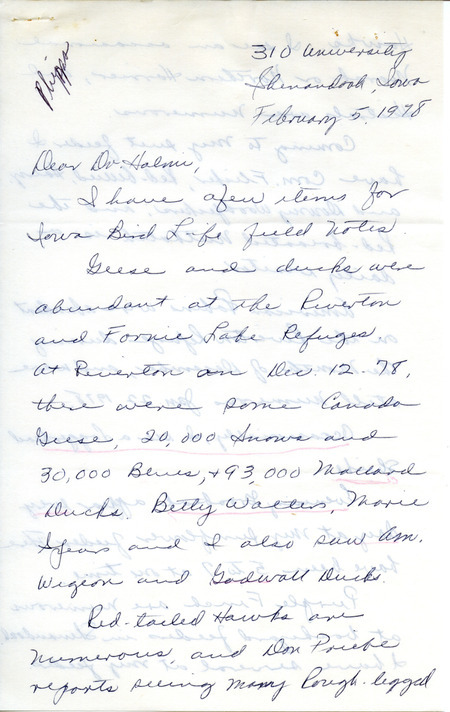 Phipps
310 University
Shenandoah, Iowa
February 5, 1978
Dear Dr. Halmi,
I have a few items for
Iowa Bird Life field notes.
Geese and ducks were
abundant at the Riverton
and Forney Lake Refuges.
At Riverton on Dec. 12. 78,
there were some Canada
Geese, 20,000 Snows and
30,000 Blues, + 93,000 Mallard
Ducks. Betty Walters, Marie
Spears and I also saw Am.
Wigeon and Gadwall Ducks.
Red-tailed Hawks are
numerous, and Don Priebe
reports seeing many Rough-legged